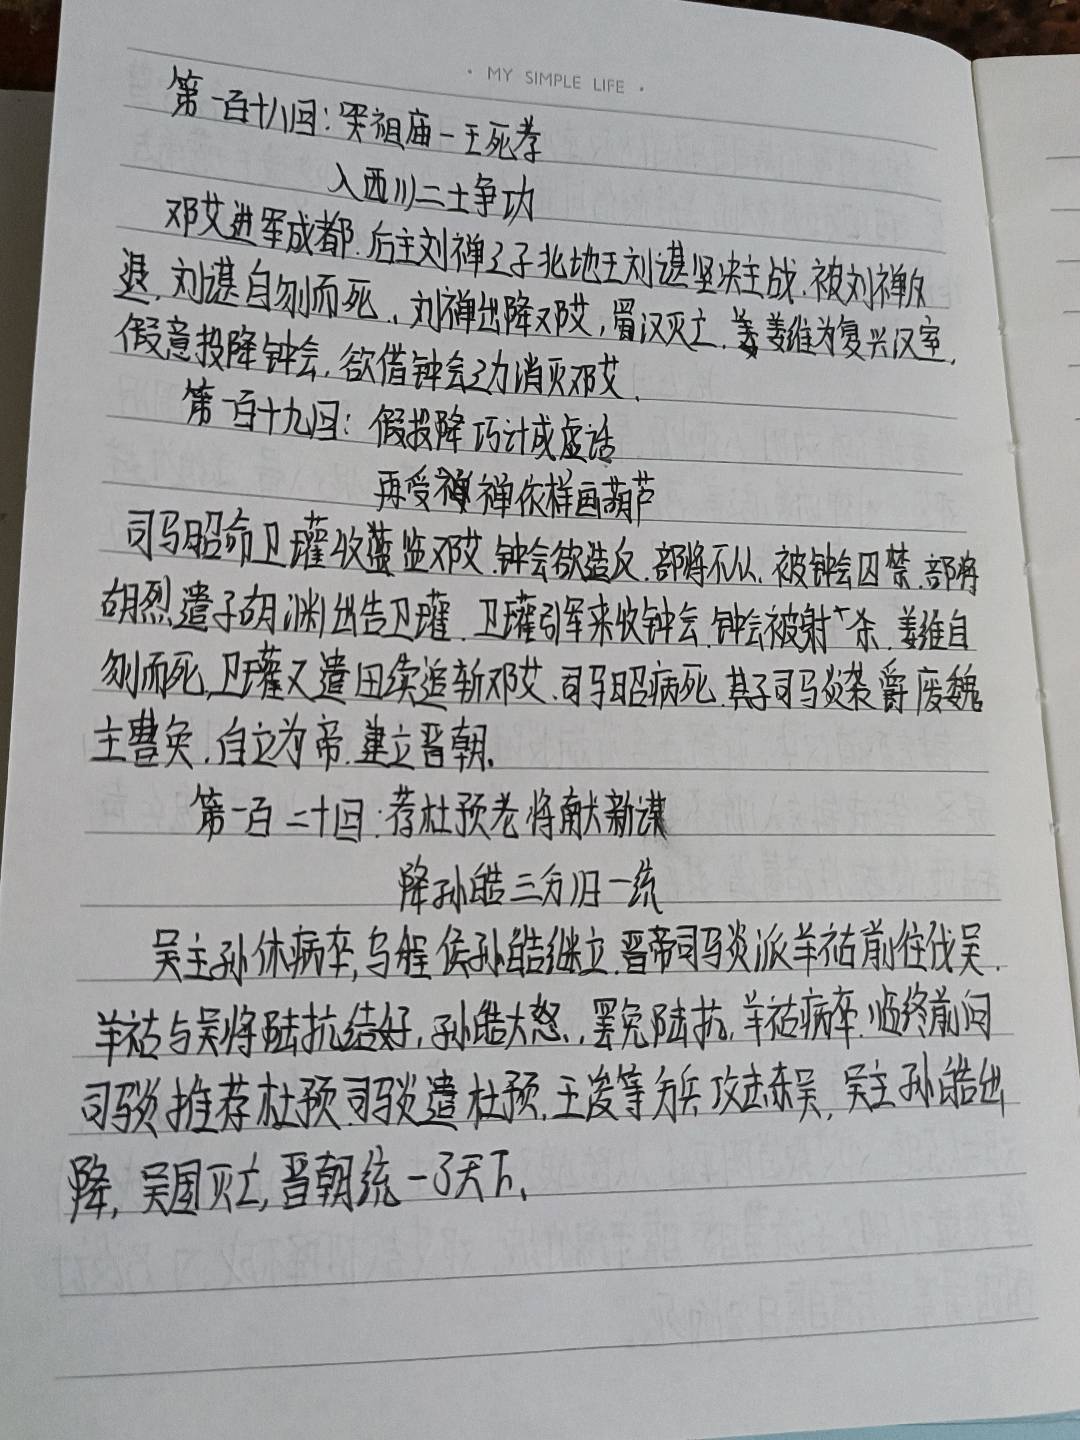 · MY SIMPLE LIFE ·
第一百十八回：哭祖庙一王死孝
入西川二士争功
邓艾进军成都.后主刘禅之子北地王刘谌坚决主战.被刘禅斥
退.刘谌自刎而死.,刘禅出降邓艾,蜀汉灭亡.姜姜维为复兴汉室,
假意投降钟会,欲借钟会之力消灭邓艾.
第一百十九回：假投降巧计成虚话
再受禅禅依样画葫芦
司马昭命卫瓘收监邓艾.钟会欲造反.部将不从.被钟会囚禁.部将
胡烈遣子胡渊出告卫瓘.卫瓘引军来收钟会.钟会被射杀.姜维自
刎而死.卫瓘又遣田续追斩邓艾.司马昭病死.其子司马炎袭爵废魏
主曹奂.自立为帝.建立晋朝.
第一百二十回：荐杜预老将献新谋
降孙皓三分归一统
吴主孙休病卒,乌程侯孙皓继立.晋帝司马炎派羊祜前往伐吴.
羊祜与吴将陆抗结好,孙皓大怒.,罢免陆抗,羊祜病卒.临终前向
司马炎推荐杜预.司马炎遣杜预.王浚等为兵攻击东吴,吴主孙皓出
降,吴国灭亡,晋朝统一了天下.